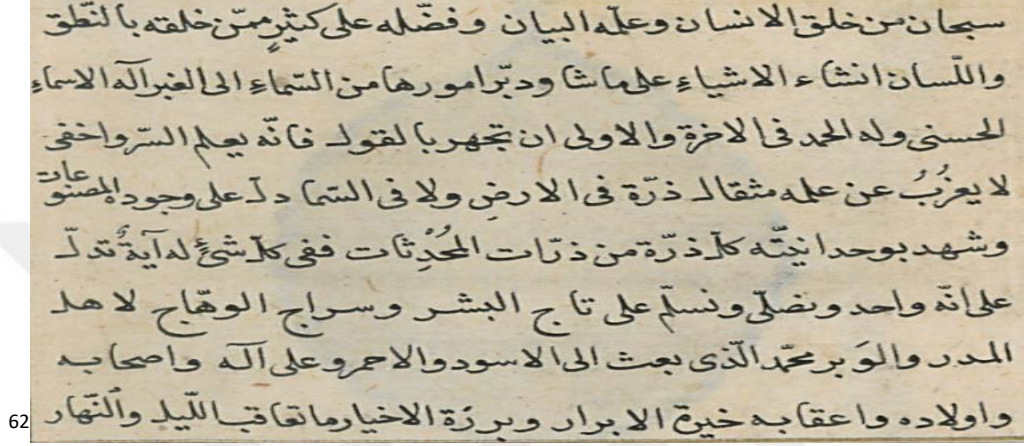 سبحان من خلق الانسان وعلّمه البيان وفضّله على كثيرٍ ممّن خلقه بالنّطق
واللّسان انشاء الاشياءِ على ماشا ودبّر امورها من السّماءِ الى الغبرا له الاسماءِ
الحسنى وله الحمد فى الاخرة والاولى ان تجهر بالقول فانّه يعلم السّر واخفى
لا يعزُبُ عن علمه مثقال ذرّة فى الارضِ ولا فى السّما دلّ على وجوده المصنوعات
وشهد بوحدانيّته كلّ ذرّة من ذرّات المُحْدِثات ففى كلّ شئٍ له آيةٌ تدلّ
على انّه واحد ونصلّى ونسلّم على تاج البشر وسراج الوهّاج لاهل
المدر والوَبر محمّد الّذى بعث الى الاسود والاحمر وعلى آله واصحابه
واولاده واعقابه خيرة الابرار وبررَة الاخيار ماتعاقب اللّيل والنّهار
62